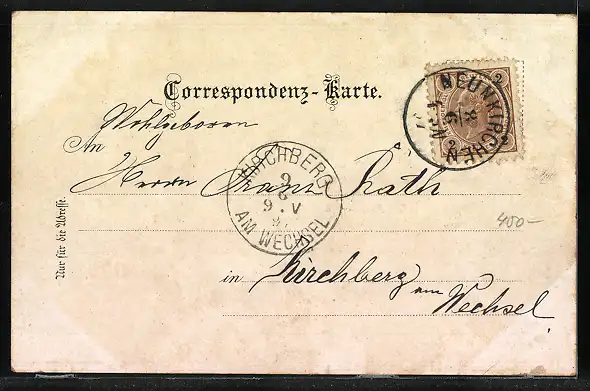 Correspondenz-Karte.
Wohlgeboren
An
Herrn Franz Rath
in Kirchberg
am
Wechsel
Nur für die Adresse.
2
2
NEUNKIRCHEN
KIRCHBERG
9
8
9.V
97
AM WECHSEL
400-